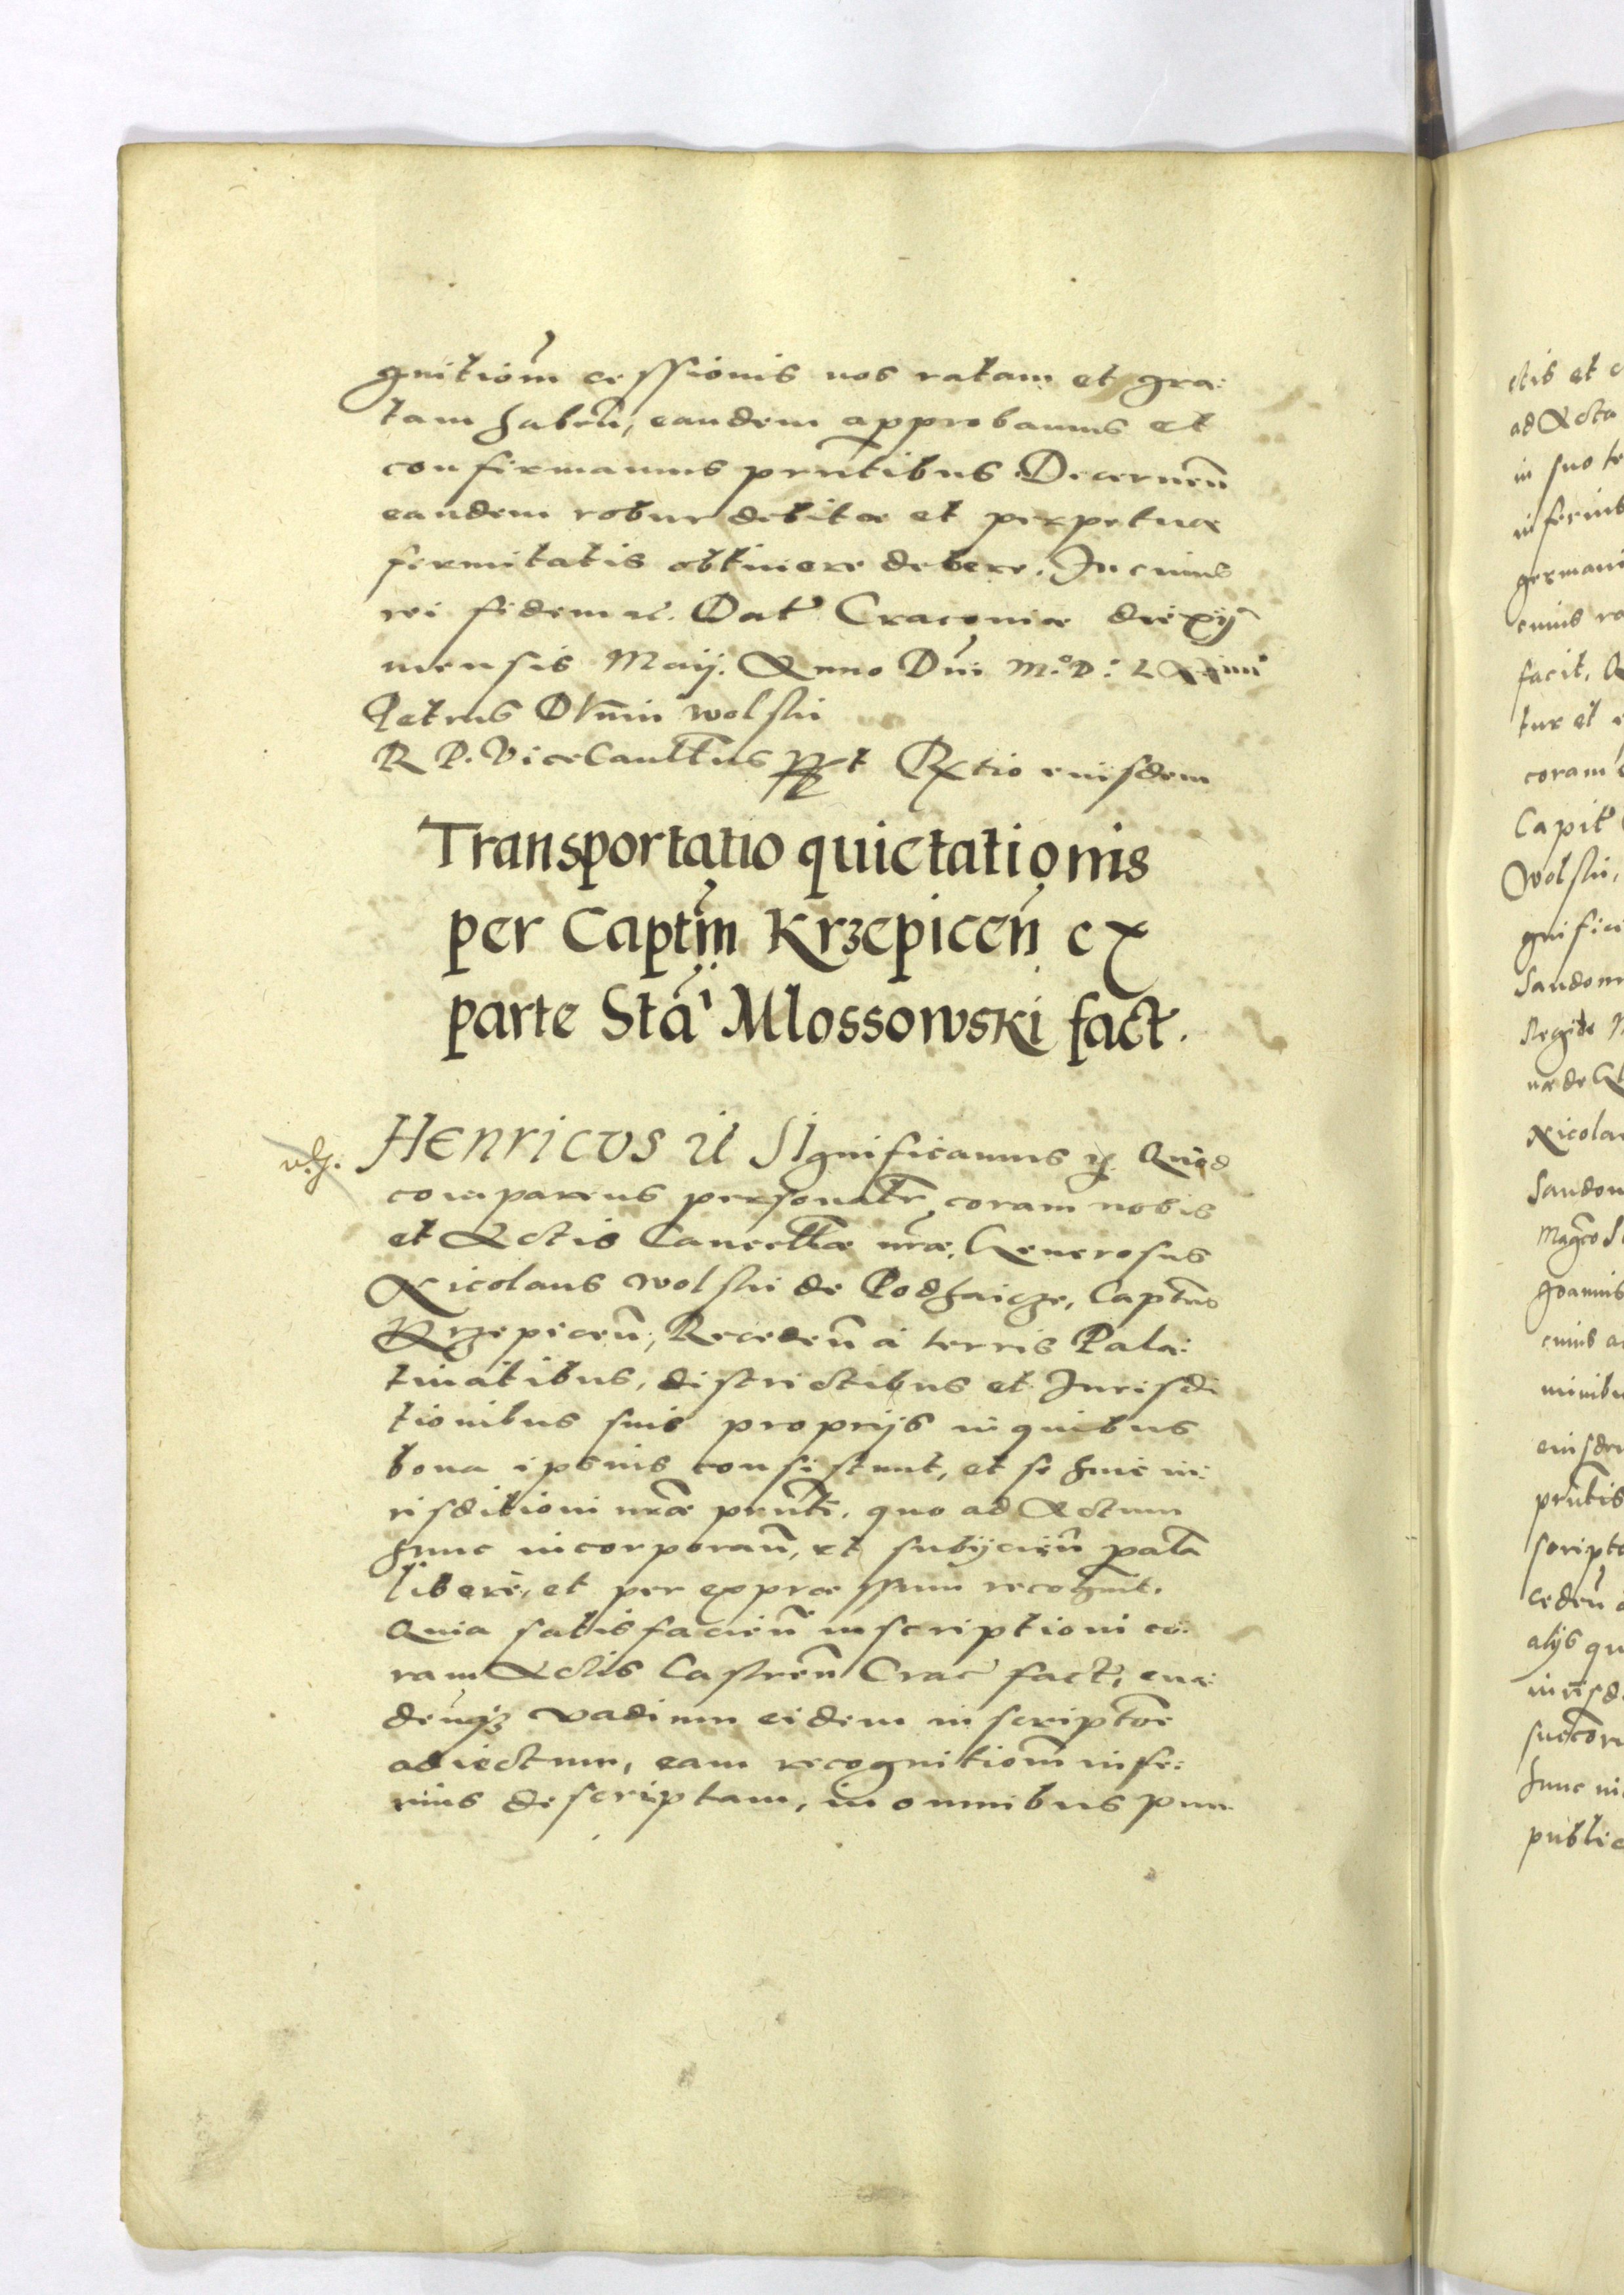 gnitiom̃ cessionis nos ratam et gra:
tam habeñ, eandem approbamus et
confirmamus prñtibus. Decerneñ
eandem robur debitæ et perpetuæ
firmitatis obtinere debere. In cuius
rei fidem etc. Dat̃ Cracoviæ die xij
mensis Maij. Anno Dñi M.° D.° LXXiiii°
Petrus Dunin Wolski
R P. Vicecancell̃us sst Rxtio eiusdem
Transportatio quietationis
per Capt̃m Krzepiceñ ex
parte Sta͂i Mlossowski fact.
HENRICUS etc̃ SIgnificamus etc. Quod
comparens personalr̃ coram nobis
et Actis Cancell̃æ nr̃æ, Generosus
Nicolaus Wolski de Podhaicze, Capt̃us
Krzepiceñ, Recedeñ a terris Pala:
tinatibus, districtibus et Jurisdi
tionibus suis proprijs in quibus
bona ipsius consistunt, et se huic iu:
risditioni nr̃æ prñti, quo ad Actum
hunc incorporañ, et subijcieñ palã
liberè, et per expræssum recognit.
Quia satisfacieñ inscriptioni co:
ram Actis Castreñ Crac̃ fact, eua:
deñq3 vadium eidem inscript̃oe
adiectum, eam recognitiom̃ infe:
rius descriptam, in omnibus pun
ctis et
ad Acta
in suo te
inferius
germani
cuius re
facit,
tur et
coram
Capit̃
Wolski,
gnifi
Sandom
Regiæ
Nicola
Sandom
Magco
Joannis
cuius
minibu
eiusdem
prñtis
script
cedeñ
alijs qu
iurisd
succor
hunc in
public